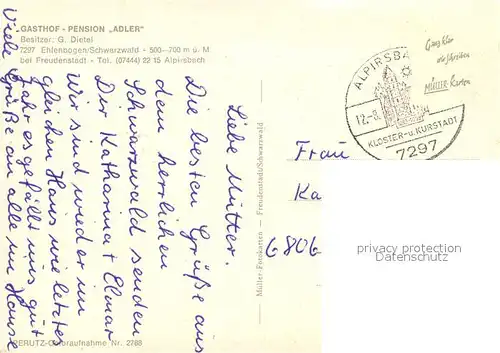 GASTHOF - PENSION „ADLER"
Besitzer: G. Dietel
7297 Ehlenbogen/Schwarzwald - 580—700 m ü. M
bei Freudenstadt - Tel. (07444) 22 15 Alpirsbach
Liebe Mutter.
Die besten Grüße aus
dem herrlichen
Schwarzwald senden
Dir Katharina + Elmar
Wir sind wieder im
gleichen Haus wie letztes
Jahr es gefällt uns gut
Viele Grüße an alle im Hause
PERUTZ-Coloraufnahme Nr. 2788
Müller-Fotokarten — Freudenstadt/Schwarzwald
ALPIRSBA
12.-8.
KLOSTER-u.KURSTADT
7297
Ganz klar
wir schreiben
MÜLLER-Karten
Frau
Ka
6806
privacy protection
Datenschutz